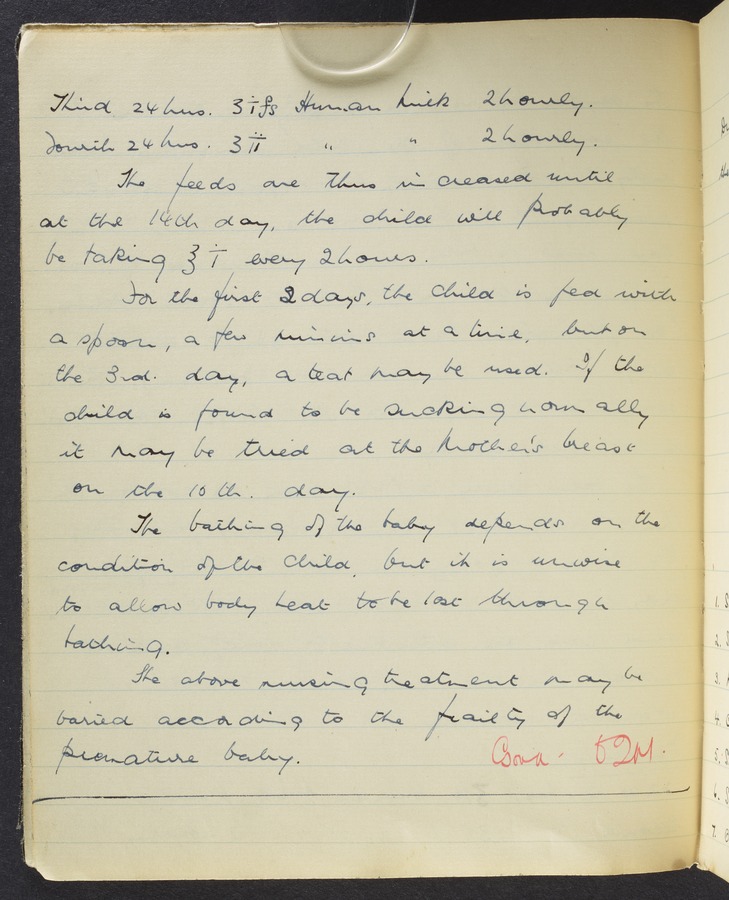 Third 24 hrs. ʒ i fs Human Milk 2 hourly.
Fourth 24 hrs. ʒ ii " " 2 hourly.
The feeds are thus increased until
at the 14th day, the child will probably
be taking ℥ i every 2 hours.
For the first 2 days, the child is fed with
a spoon, a few minims at a time, but on
the 3rd. day, a teat may be used. If the
child is found to be sucking normally
it may be tried at the Mother's breast
on the 10th. day.
The bathing of the baby depends on the
condition of the child, but it is unwise
to allow body heat to be lost through
bathing.
The above nursing treatment may be
varied according to the frailty of the
premature baby.
Good.
1. S
2. S
3.
4.
5. S
6. S
7.